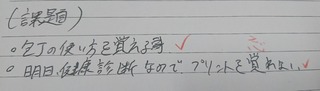 (課題)
・包丁の使い方を覚える事
・明日、健康診断なので、プリントを覚れない